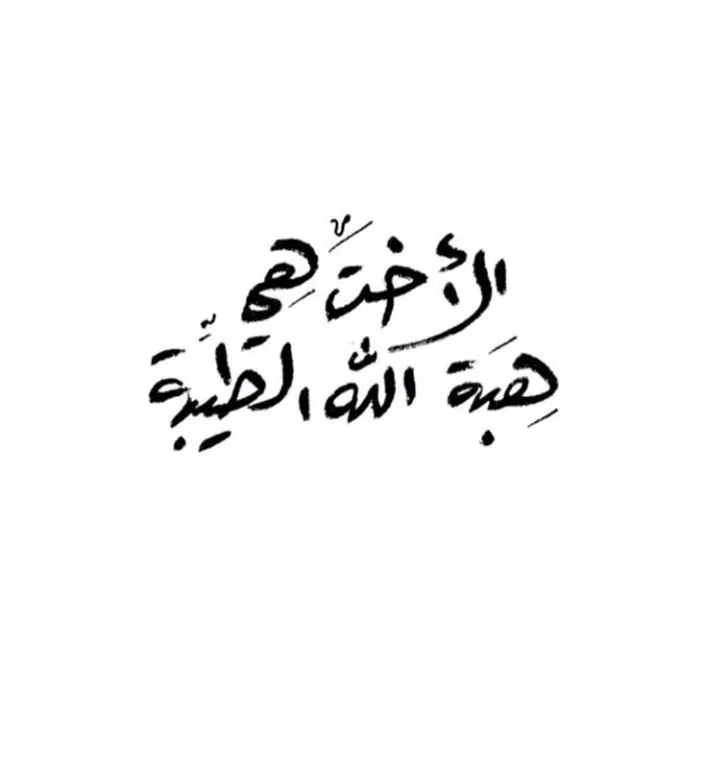 الأختُ هِي
هِبَة الله الطيِّبة